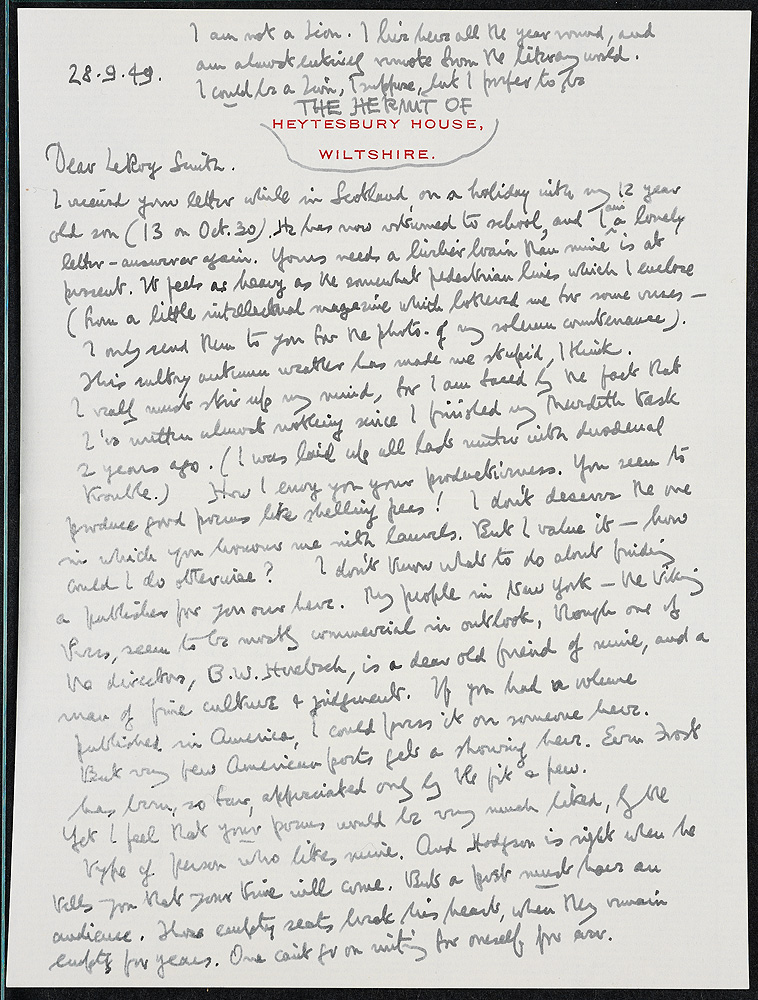 I am not a Lion. I live here all the year round, and
am almost entirely remote from the literary world.
28.9.49.
I could be a Lion, I suppose, but I prefer to be
THE HERMIT OF
HEYTESBURY HOUSE,
WILTSHIRE.
Dear LeRoy Smith.
I received your letter while in Scotland, on a holiday with my 12 year
old son (13 on Oct. 30). He has now returned to school, and I am a lonely
letter-answerer again. Yours needs a livelier brain than mine is at
present. It feels as heavy as the somewhat pedestrian lines which I enclose
(from a little intellectual magazine which bothered me for some verses —
I only send them to you for the photo. of my solemn countenance).
This sultry autumn weather has made me stupid, I think.
I really must stir up my mind, for I am faced by the fact that
I've written almost nothing since I finished my Meredith task
2 years ago. (I was laid up all last winter with duodenal
trouble.) How I envy you your productiveness. You seem to
produce good poems like shelling peas! I don't deserve the one
in which you honour me with laurels. But I value it — how
could I do otherwise? I don't know what to do about finding
a publisher for you over here. My people in New York — the Viking
Press, seem to be mostly commercial in outlook, though one of
the directors, B.W. Huebsch, is a dear old friend of mine, and a
man of fine culture & judgement. If you had a volume
published in America, I could press it on someone here.
But very few American poets get a showing here. Even Frost
has been, so far, appreciated only by the fit & few.
Yet I feel that your poems would be very much liked, by the
type of person who likes mine. And Hodgson is right when he
tells you that your time will come. But a poet must have an
audience. Those empty seats break his heart, when they remain
empty for years. One can't go on writing for oneself, for ever.